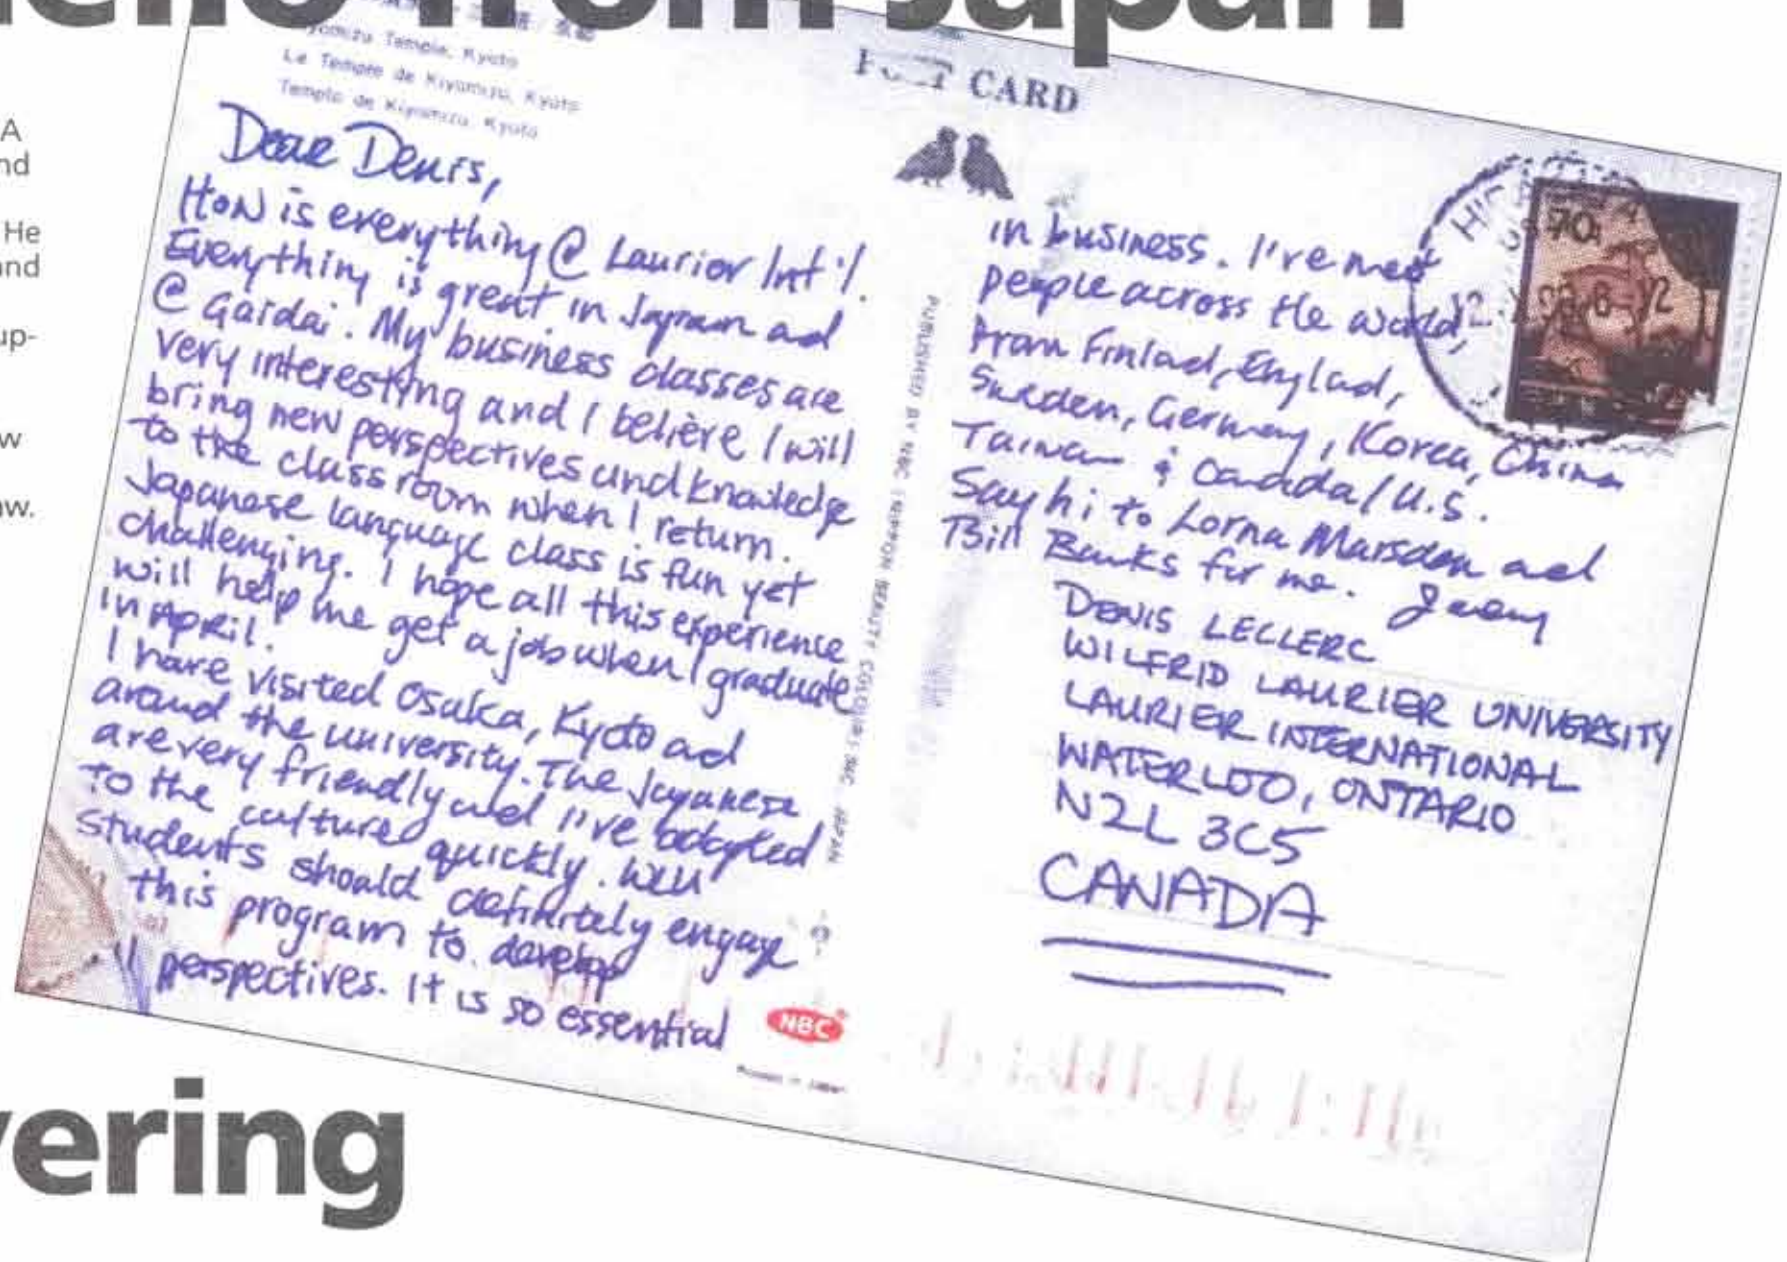 Hello from Japan
A
nd
He
and
up-
w
aw.
Kiyomizu Temple, Kyoto
Le Temple de Kiyomizu, Kyoto
Templo de Kiyomizu, Kyoto
POST CARD
Dear Denis,
How is everything @ Laurier Int'l.
Everything is great in Japan and
@ Gaidai. My business classes are
very interesting and I believe I will
bring new perspectives and knowledge
to the classroom when I return.
Japanese language class is fun yet
challenging. I hope all this experience
will help me get a job when I graduate
in April.
I have visited Osaka, Kyoto and
around the university. The Japanese
are very friendly and I've adapted
to the culture quickly. WLU
students should definitely engage
this program to develop
perspectives. It is so essential
PUBLISHED BY NBC (NIPPON BEAUTY COLOUR) INC. JAPAN
NBC
Printed in Japan
in business. I've met
people across the world,
from Finland, England,
Sweden, Germany, Korea, China
Taiwan & Canada/U.S.
Say hi to Lorna Marsden and
Bill Banks for me. Jeremy
DENIS LECLERC
WILFRID LAURIER UNIVERSITY
LAURIER INTERNATIONAL
WATERLOO, ONTARIO
N2L 3C5
CANADA
70
vering